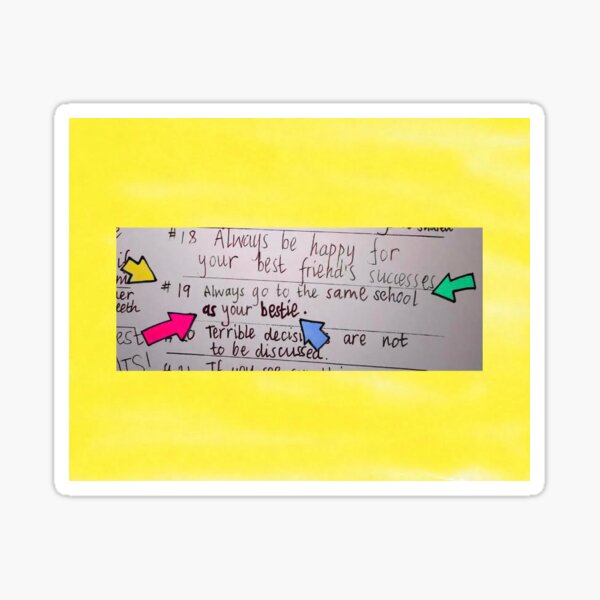 #18 Always be happy for
your best friend's successes
#19 Always go to the same school
eeth as your bestie.
est Terrible decisi are not
TS! to be discussed.
If you see